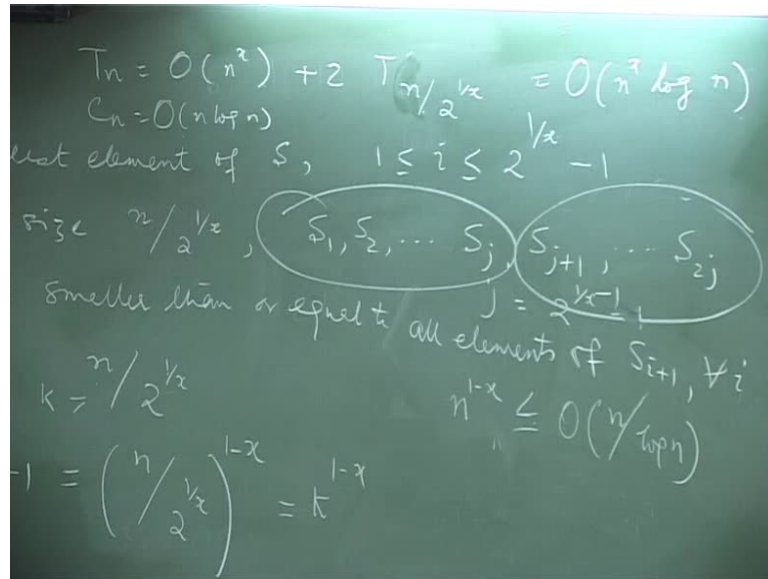 Tn = O(n^x) + 2 T n/2^{1/x} = O(n^x log n)
Cn = O(n log n)
element of S, 1 ≤ i ≤ 2^{1/x} - 1
size n/2^{1/x}, S1, S2, ... Sj, Sj+1, ... S2j
smaller than or equal to all elements of Si+1, ∀i
j = 2^{1/x-1}
k = n/2^{1/x}
n^{1-x} ≤ O(n/log n)
-1 = (n/2^{1/x})^{1-x} = k^{1-x}